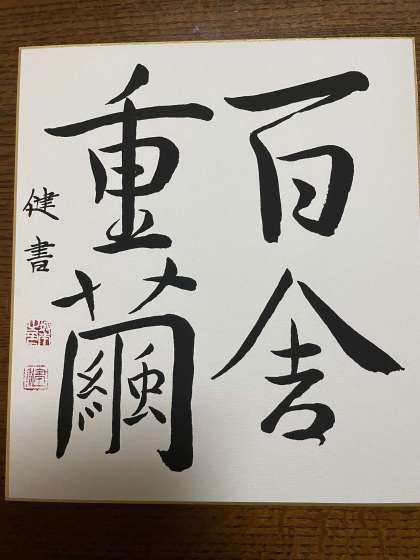 百舎
重繭
健書